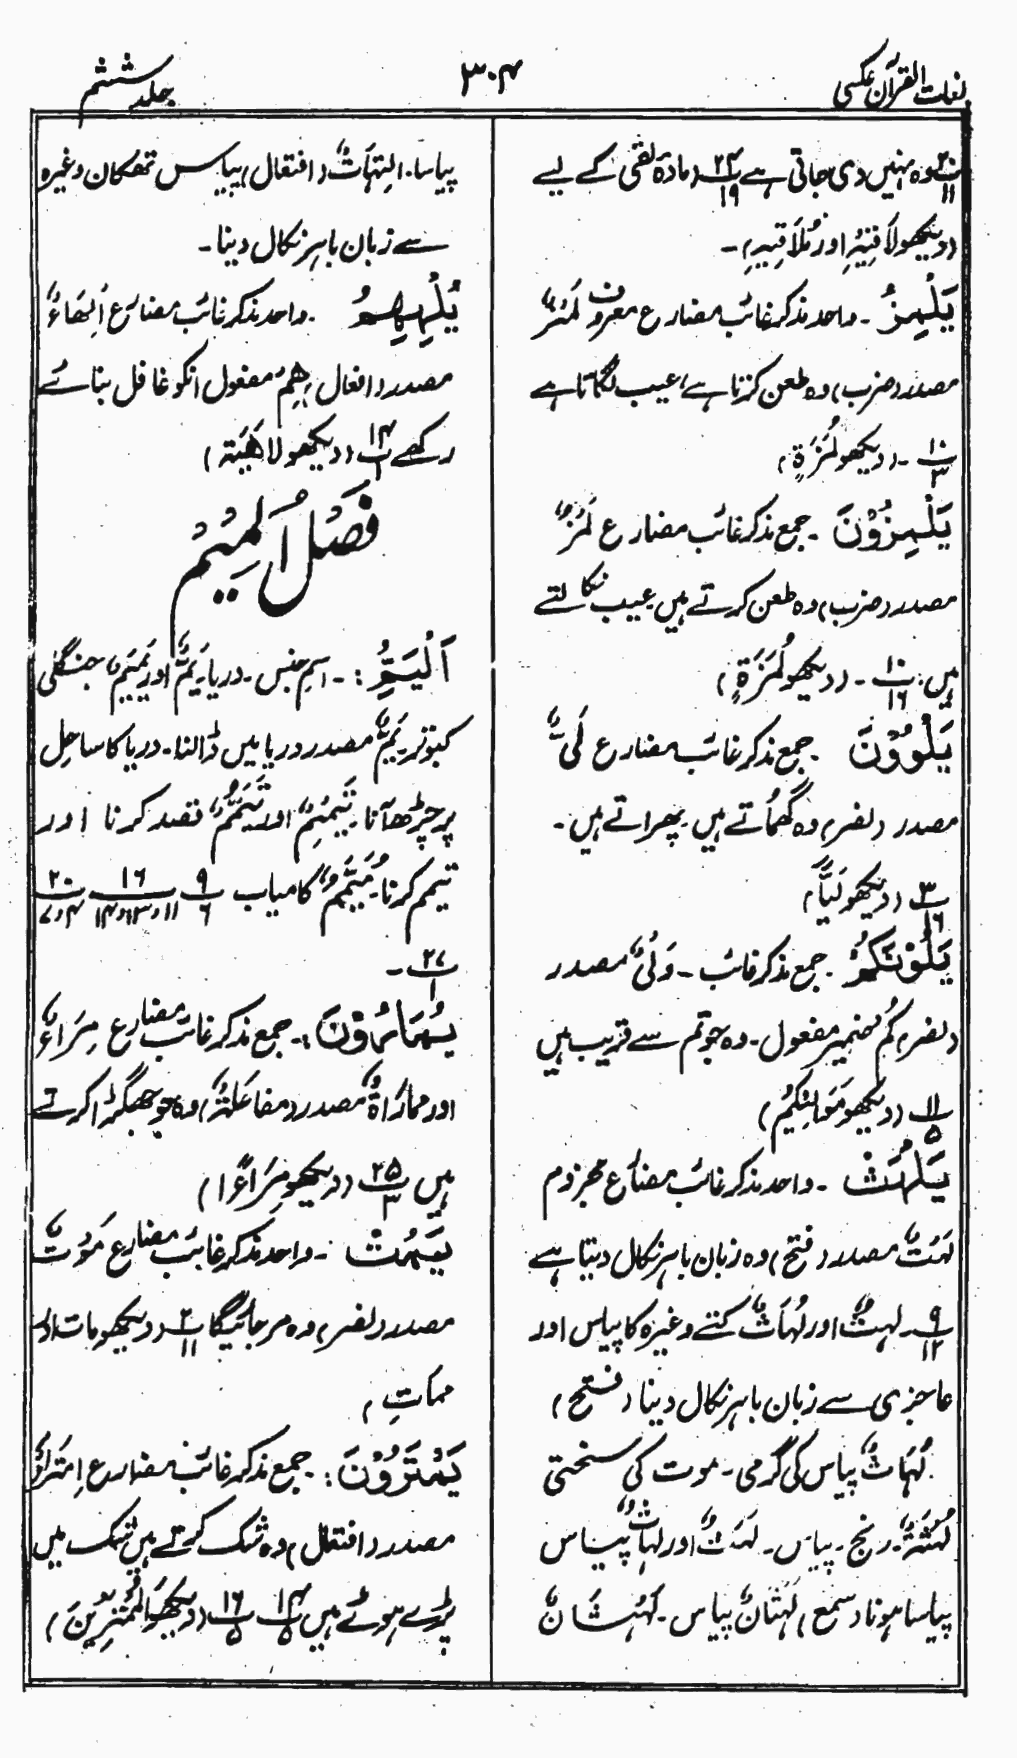 لغات القرآن عکسی
۳۰۴
جلد ششم
۲۰/۱۱ وہ نہیں دی جاتی ہے ۲۴/۱۹ (مادۂ لقی کے لیے
(دیکھو لاقیہِ اور مُلَاقِیہِ) -
یَلْمِزُ - واحد مذکر غائب مضارع معروف لَمْزٌ
مصدر (ضرب) وہ طعن کرتا ہے، عیب لگاتا ہے
۱۰/۳ - (دیکھو لُمَزَۃٍ)
یَلْمِزُوْنَ - جمع مذکر غائب مضارع لَمْزٌ
مصدر (ضرب) وہ طعن کرتے ہیں عیب نکالتے
ہیں: ۱۰/۱۶ - (دیکھو لُمَزَۃٍ)
یَلْوٗوْنَ - جمع مذکر غائب مضارع لَیٌّ
مصدر (نصر) وہ گھماتے ہیں - پھراتے ہیں -
۳/۱۶ (دیکھو لَیًّا)
یَلُوْنَکُمْ - جمع مذکر غائب - وَلْیٌ مصدر
(نصر) کُمْ ضمیر مفعول - وہ جو تم سے قریب ہیں
۱۱/۵ (دیکھو مَوَالِیْکُمْ)
یَلْهَثْ - واحد مذکر غائب مضارع مجزوم
لَهْثٌ مصدر (فتح) وہ زبان باہر نکال دیتا ہے
۹/۱۲ - لہثٌ اور لُهَاثٌ کتے وغیرہ کا پیاس اور
عاجزی سے زبان باہر نکال دینا (فتح)
لُهَاثٌ پیاس کی گرمی - موت کی سختی
لُهْثَةٌ - رنج - پیاس - لَهَثٌ اور لہاثٌ پیاس
پیاسا ہونا (سمع) لَهْثَانٌ پیاس - لَهْثَانٌ
پیاسا - اِلْتِهَاثٌ (افتعال) پیاس تھکان وغیرہ
سے زبان باہر نکال دینا -
یُلْهِهِمُ - واحد مذکر غائب مضارع اِلْهَاءٌ
مصدر (افعال) هِمُ مفعول انکو غافل بنائے
رکھے ۱۴/۱ (دیکھو لاهِیَة)
فَصْلُ الْمِیْمِ
اَلْیَمِّ :- اسم جنس - دریا - یَمٌّ اور یَمِیْمٌ جنگلی
کبوتر - یَمٌّ مصدر دریا میں ڈالنا - دریا کا ساحل
پر چڑھ آنا - تَیْمِیْمٌ اور تَیَمُّمٌ قصد کرنا اور
تیمم کرنا - مُیَمَّمٌ کامیاب ۹/۶ ۱۶/۱۱و۱۳و۱۴ ۲۰/۴و۷
۲۷/۱ -
یُمَارُوْنَ :- جمع مذکر غائب مضارع مِرَاءٌ
اور مماراۃٌ مصدر (مفاعلۃ) وہ جو جھگڑا کرتے
ہیں ۲۵/۳ (دیکھو مِرَاءً)
یَمُتْ - واحد مذکر غائب مضارع مَوْتٌ
مصدر (نصر) وہ مر جائیگا ۲/۱۱ (دیکھو مات اور
مماتِ)
یَمْتَرُوْنَ :- جمع مذکر غائب مضارع اِمْتِرَاءٌ
مصدر (افتعال) وہ شک کرتے ہیں شک میں
پڑے ہوئے ہیں ۱۴/۵ ۱۶/۵ (دیکھو الْمُمْتَرِیْنَ)